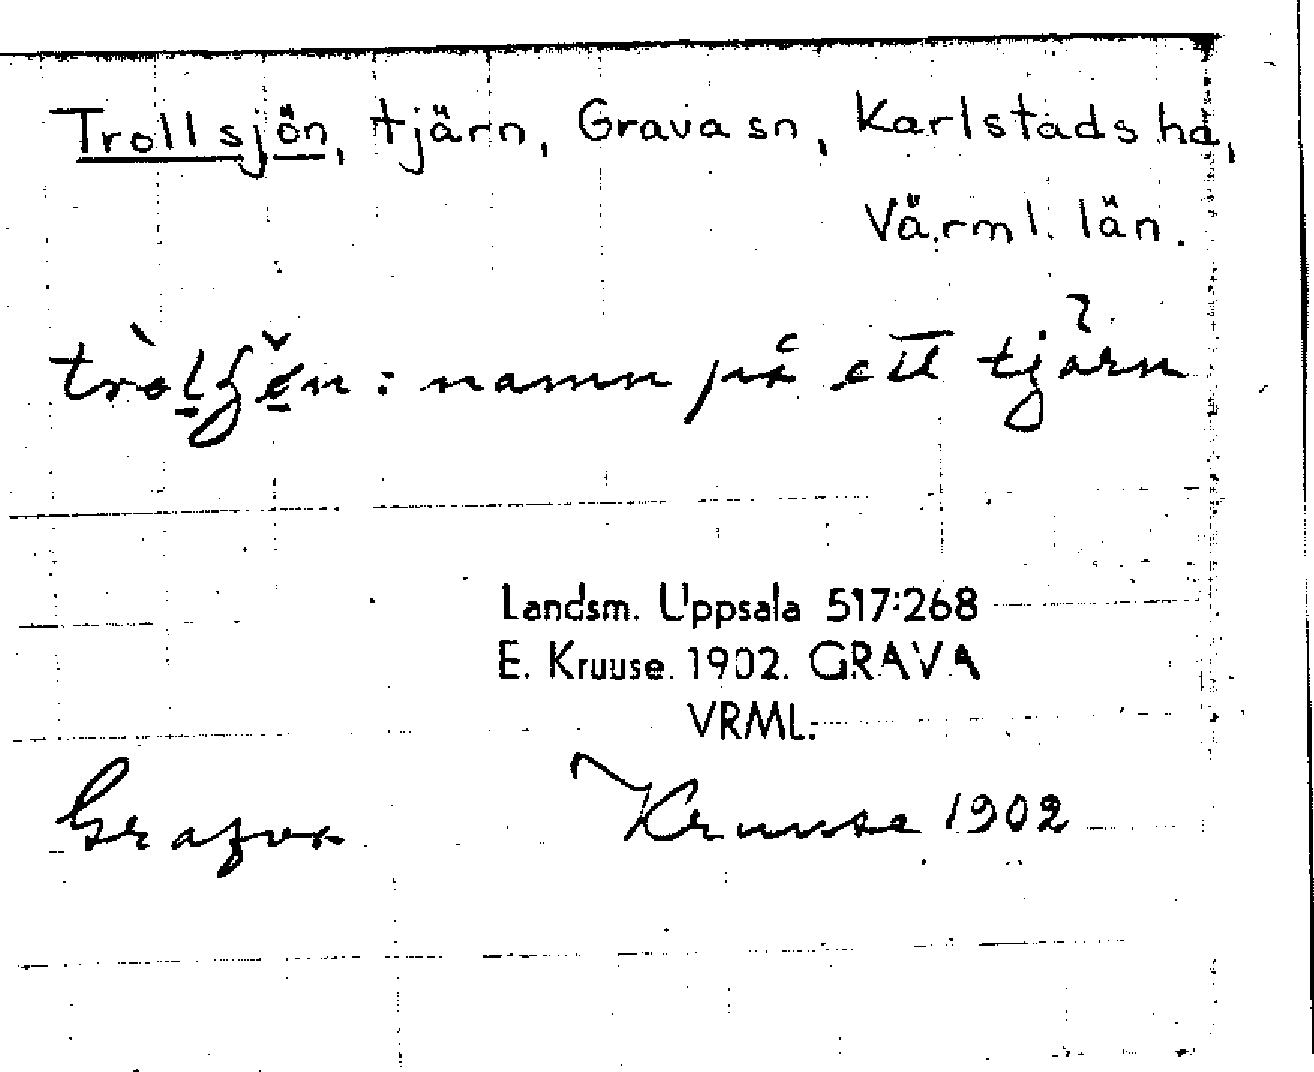 Trollsjön, tjärn, Grava sn, Karlstads hd,
Värml. län.
: namn på ett tjärn
Landsm. Uppsala 517:268
E. Kruuse. 1902. GRAVA
VRML.
Grafva Kruuse 1902